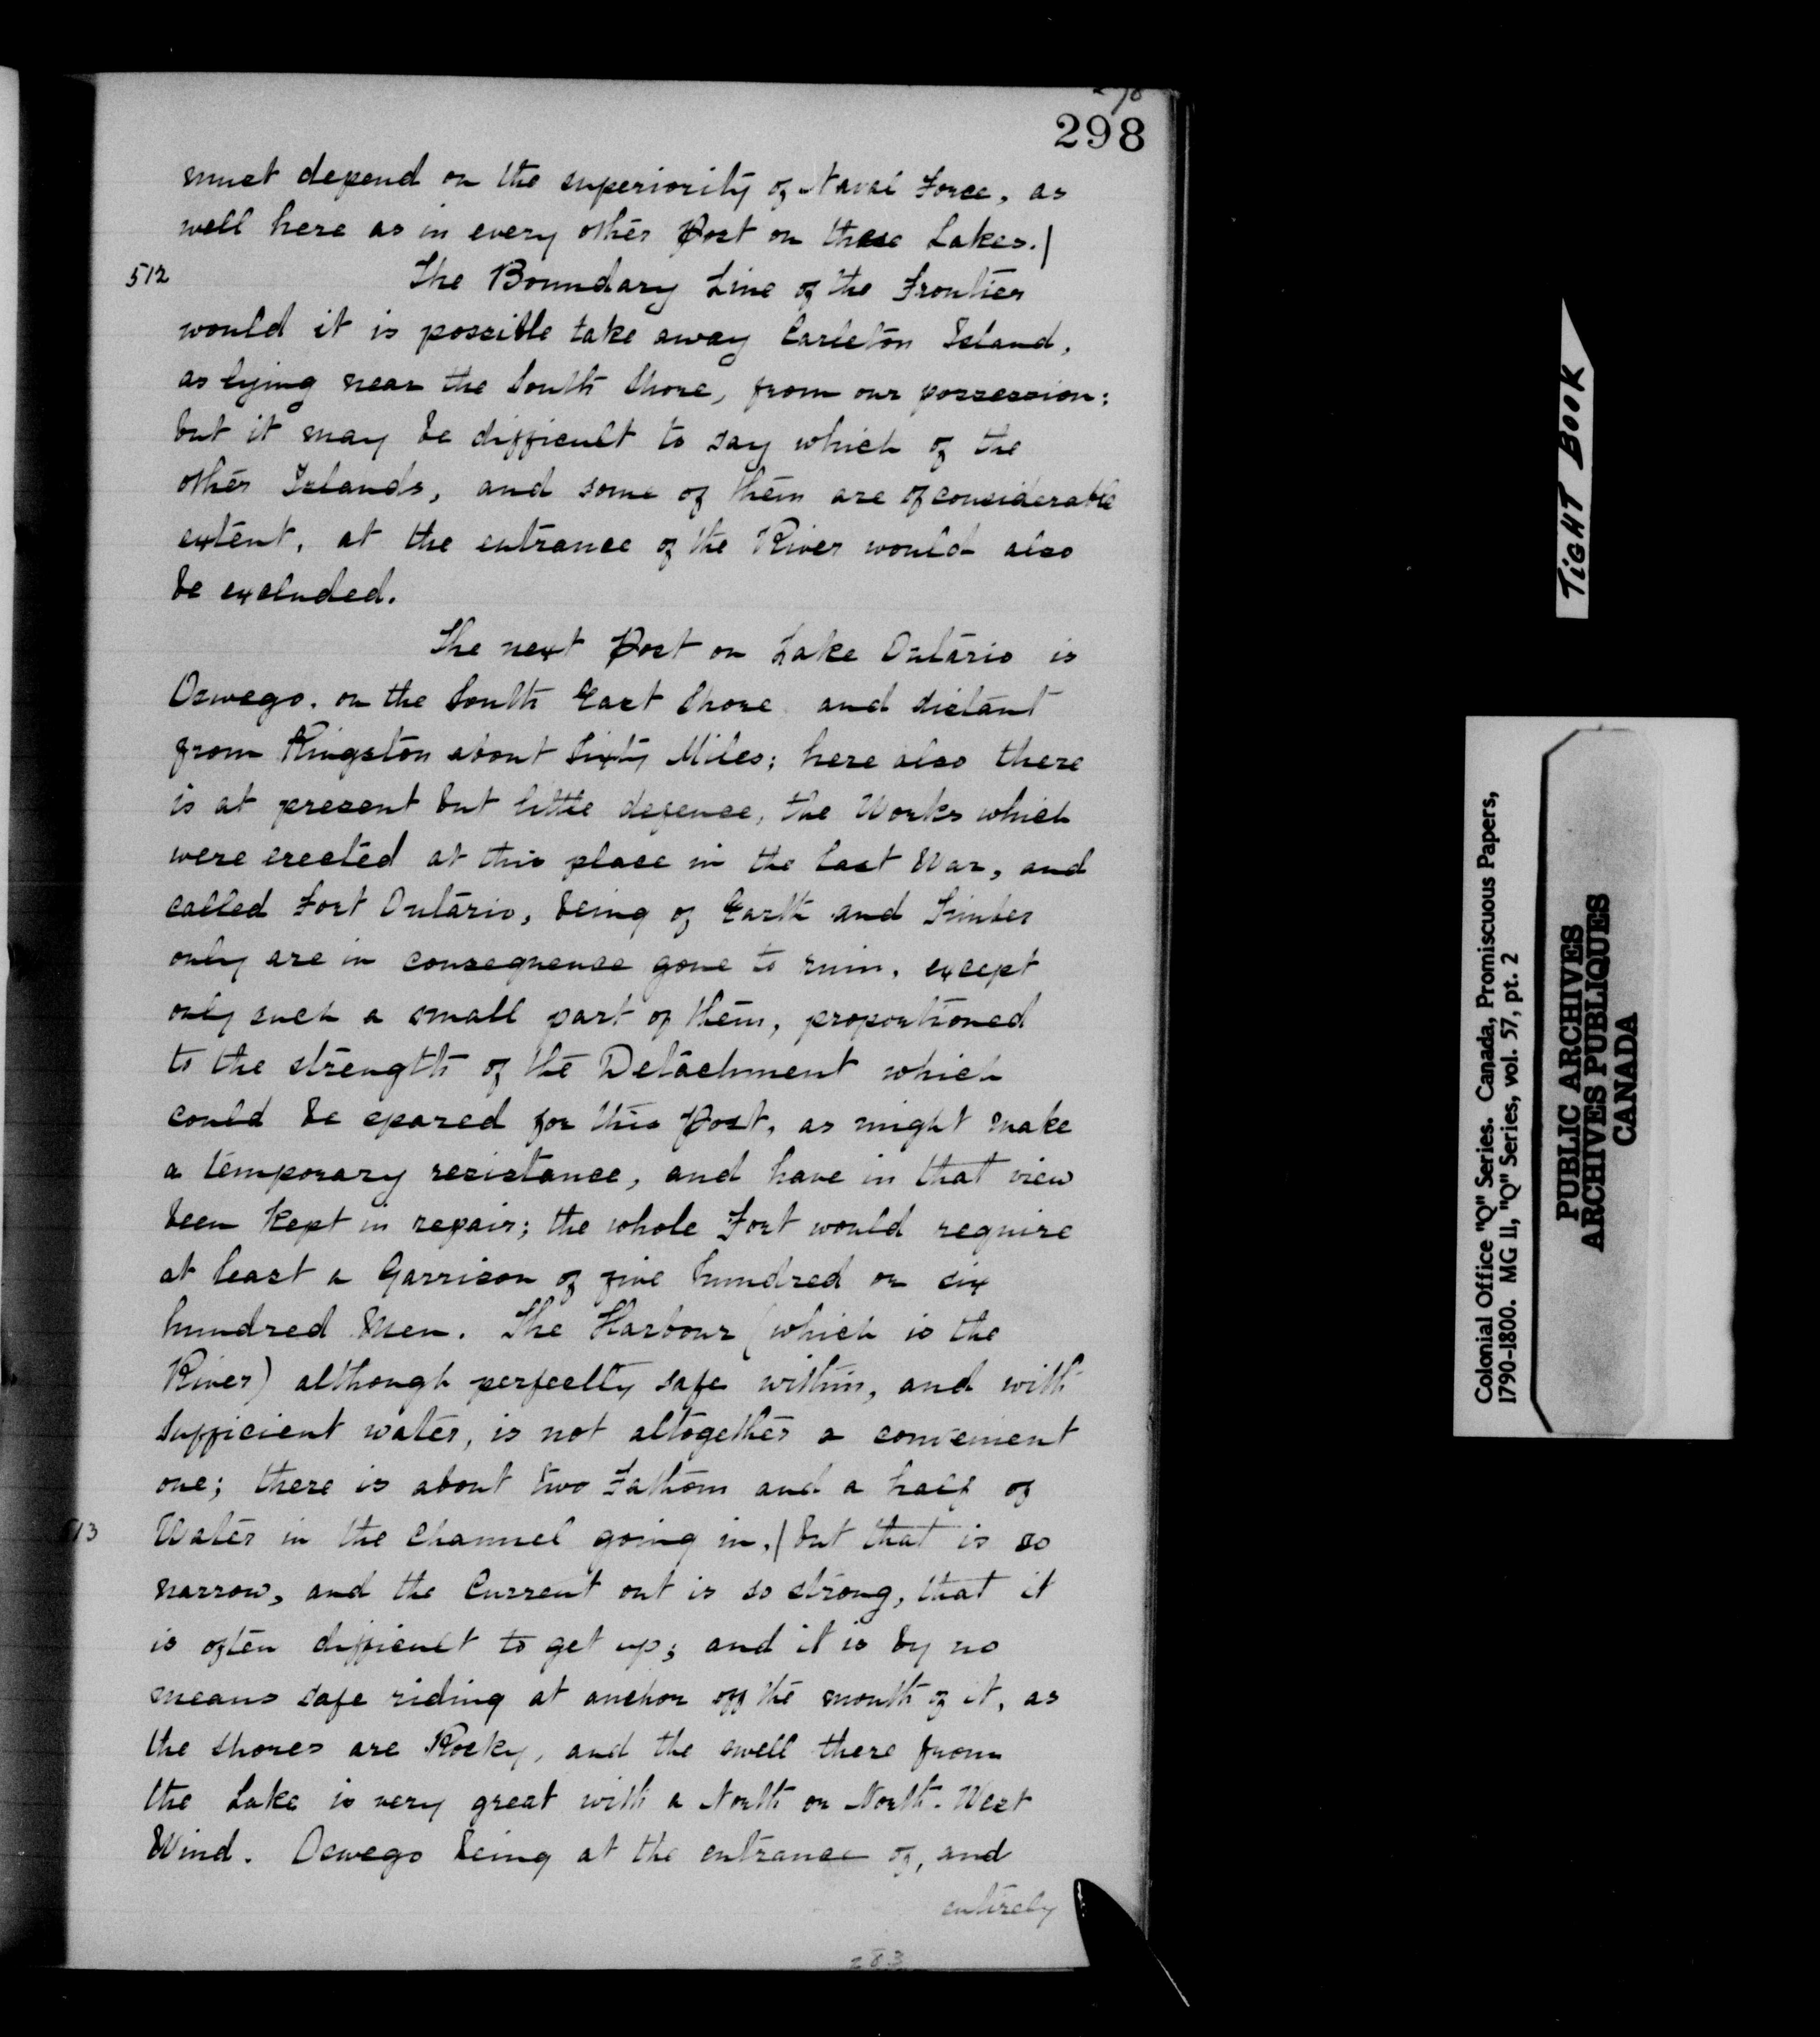 298
must depend on the superiority of Naval Force, as
well here as in every other Post on these Lakes.|
512
The Boundary Line of the Frontier
would it is possible take away Carleton Island,
as lying near the South Shore, from our possession:
but it may be difficult to say which of the
other Islands, and some of them are of considerable
extent, at the entrance of the River would also
be excluded.
The next Post on Lake Ontario is
Oswego. on the South East Shore and distant
from Kingston about Sixty Miles; here also there
is at present but little defence, the Works which
were erected at this place in the last War, and
called Fort Ontario, being of Earth and Timber
only are in consequence gone to ruin, except
only such a small part of them, proportioned
to the strength of the Detachment which
could be spared for this Post, as might make
a temporary resistance, and have in that view
been kept in repair; the whole Fort would require
at least a Garrison of five hundred or six
hundred Men. The Harbour (which is the
River) although perfectly safe within, and with
sufficient water, is not altogether a convenient
one; there is about two Fathom and a half of
513
Water in the Channel going in,| but that is so
narrow, and the Current out is so strong, that it
is often difficult to get up; and it is by no
means safe riding at anchor off the mouth of it, as
the shores are Rocky, and the swell there from
the Lake is very great with a North or North-West
Wind. Oswego being at the entrance of, and
entirely
283
TIGHT BOOK
Colonial Office "Q" Series. Canada, Promiscuous Papers,
1790-1800. MG 11, "Q" Series, vol. 57, pt. 2
PUBLIC ARCHIVES
ARCHIVES PUBLIQUES
CANADA